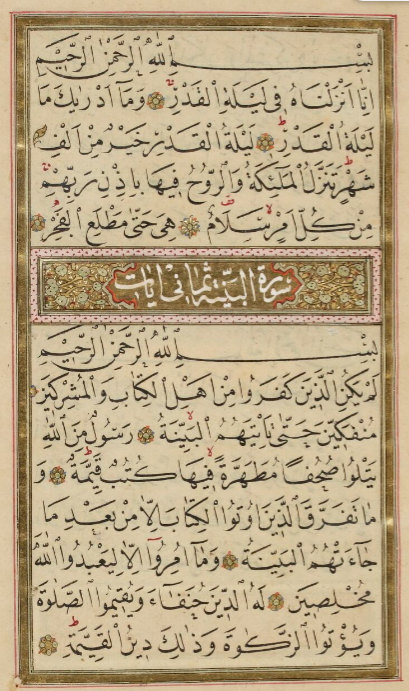 بِسْمِ اللّٰهِ الرَّحْمٰنِ الرَّحِيْمِ
اِنَّا اَنْزَلْنَاهُ فِي لَيْلَةِ الْقَدْرِ وَمَا اَدْرٰيكَ مَا
لَيْلَةُ الْقَدْرِ لَيْلَةُ الْقَدْرِ خَيْرٌ مِنْ اَلْفِ
شَهْرٍ تَنَزَّلُ الْمَلٰئِكَةُ وَالرُّوحُ فِيهَا بِاِذْنِ رَبِّهِمْ
مِنْ كُلِّ اَمْرٍ سَلَامٌ هِيَ حَتّٰى مَطْلَعِ الْفَجْرِ
سورة البينة ثماني ايات
بِسْمِ اللّٰهِ الرَّحْمٰنِ الرَّحِيْمِ
لَمْ يَكُنِ الَّذِينَ كَفَرُوا مِنْ اَهْلِ الْكِتَابِ وَالْمُشْرِكِينَ
مُنْفَكِّينَ حَتّٰى تَأْتِيَهُمُ الْبَيِّنَةُ رَسُولٌ مِنَ اللّٰهِ
يَتْلُوا صُحُفًا مُطَهَّرَةً فِيهَا كُتُبٌ قَيِّمَةٌ وَ
مَا تَفَرَّقَ الَّذِينَ اُوتُوا الْكِتَابَ اِلَّا مِنْ بَعْدِ مَا
جَاءَتْهُمُ الْبَيِّنَةُ وَمَا اُمِرُوا اِلَّا لِيَعْبُدُوا اللّٰهَ
مُخْلِصِينَ لَهُ الدِّينَ حُنَفَاءَ وَيُقِيمُوا الصَّلٰوةَ
وَيُؤْتُوا الزَّكٰوةَ وَذٰلِكَ دِينُ الْقَيِّمَةِ